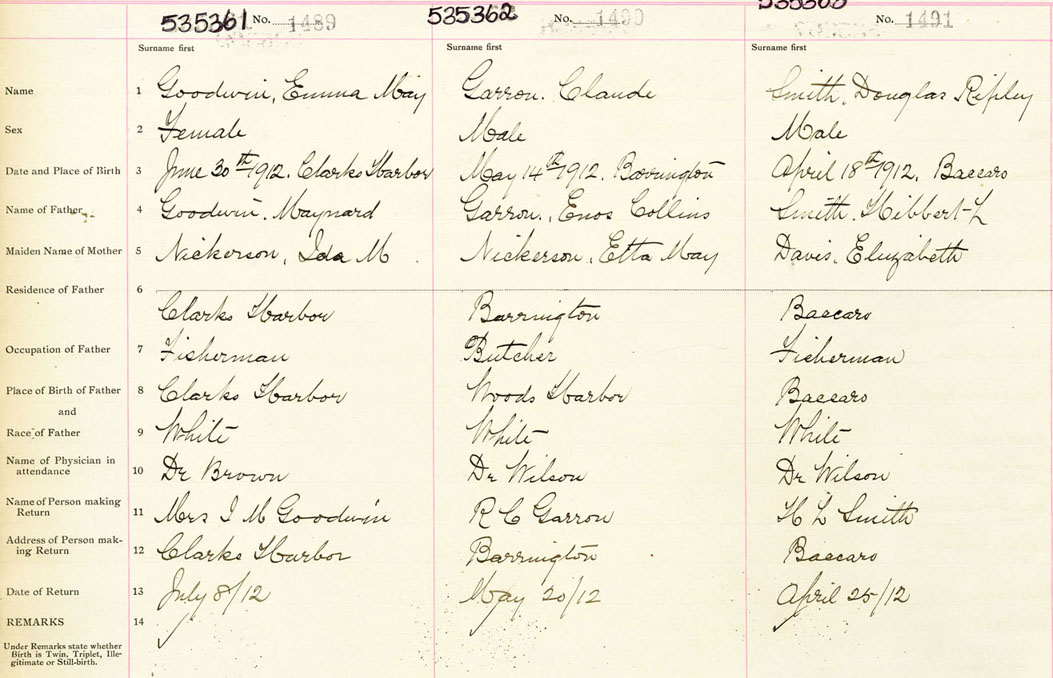 535361 No. 1489 535362 No. 1490 No. 1491
Surname first Surname first Surname first
Name 1 Goodwin, Emma May Garron. Claude Smith, Douglas Ripley
Sex 2 Female Male Male
Date and Place of Birth 3 June 30th 1912. Clarks Harbor May 14th 1912. Barrington April 18th 1912. Baccaro
Name of Father 4 Goodwin. Maynard Garron., Enos Collins Smith. Hibbert L
Maiden Name of Mother 5 Nickerson, Ida M. Nickerson, Etta May Davis, Elizabeth
Residence of Father 6
Clarks Harbor Barrington Baccaro
Occupation of Father 7 Fisherman Butcher Fisherman
Place of Birth of Father 8 Clarks Harbor Woods Harbor Baccaro
and
Race of Father 9 White White White
Name of Physician in
attendance 10 Dr Brown Dr Wilson Dr Wilson
Name of Person making
Return 11 Mrs I M Goodwin R C Garron H L Smith
Address of Person mak-
ing Return 12 Clarks Harbor Barrington Baccaro
Date of Return 13 July 8/12 May 20/12 April 25/12
REMARKS 14
Under Remarks state whether
Birth is Twin, Triplet, Ille-
gitimate or Still-birth.